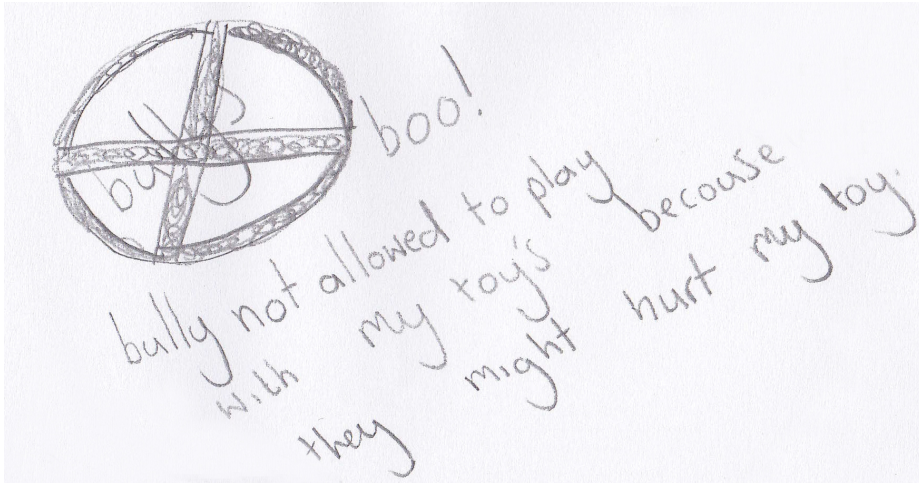 bully
boo!
bully not allowed to play
with my toy's becouse
they might hurt my toy.